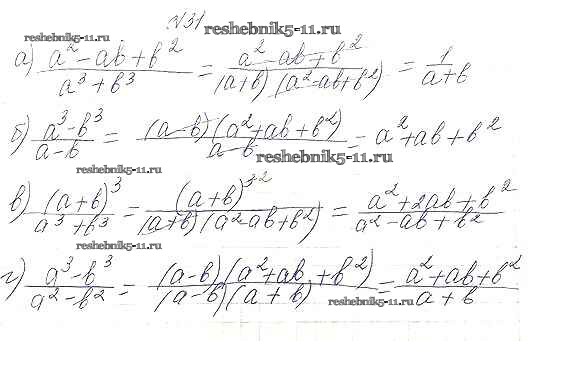 №31 reshebnik5-11.ru
reshebnik5-11.ru
а) (a² - ab + b²)/(a³ + b³) = (a² - ab + b²)/((a+b)(a² - ab + b²)) = 1/(a+b)
б) (a³ - b³)/(a - b) = ((a - b)(a² + ab + b²))/(a - b) = a² + ab + b²
reshebnik5-11.ru
reshebnik5-11.ru
в) (a + b)³/(a³ + b³) = (a + b)³ ²/((a+b)(a² - ab + b²)) = (a² + 2ab + b²)/(a² - ab + b²)
reshebnik5-11.ru
г) (a³ - b³)/(a² - b²) = ((a - b)(a² + ab + b²))/((a - b)(a + b)) = (a² + ab + b²)/(a + b)
reshebnik5-11.ru